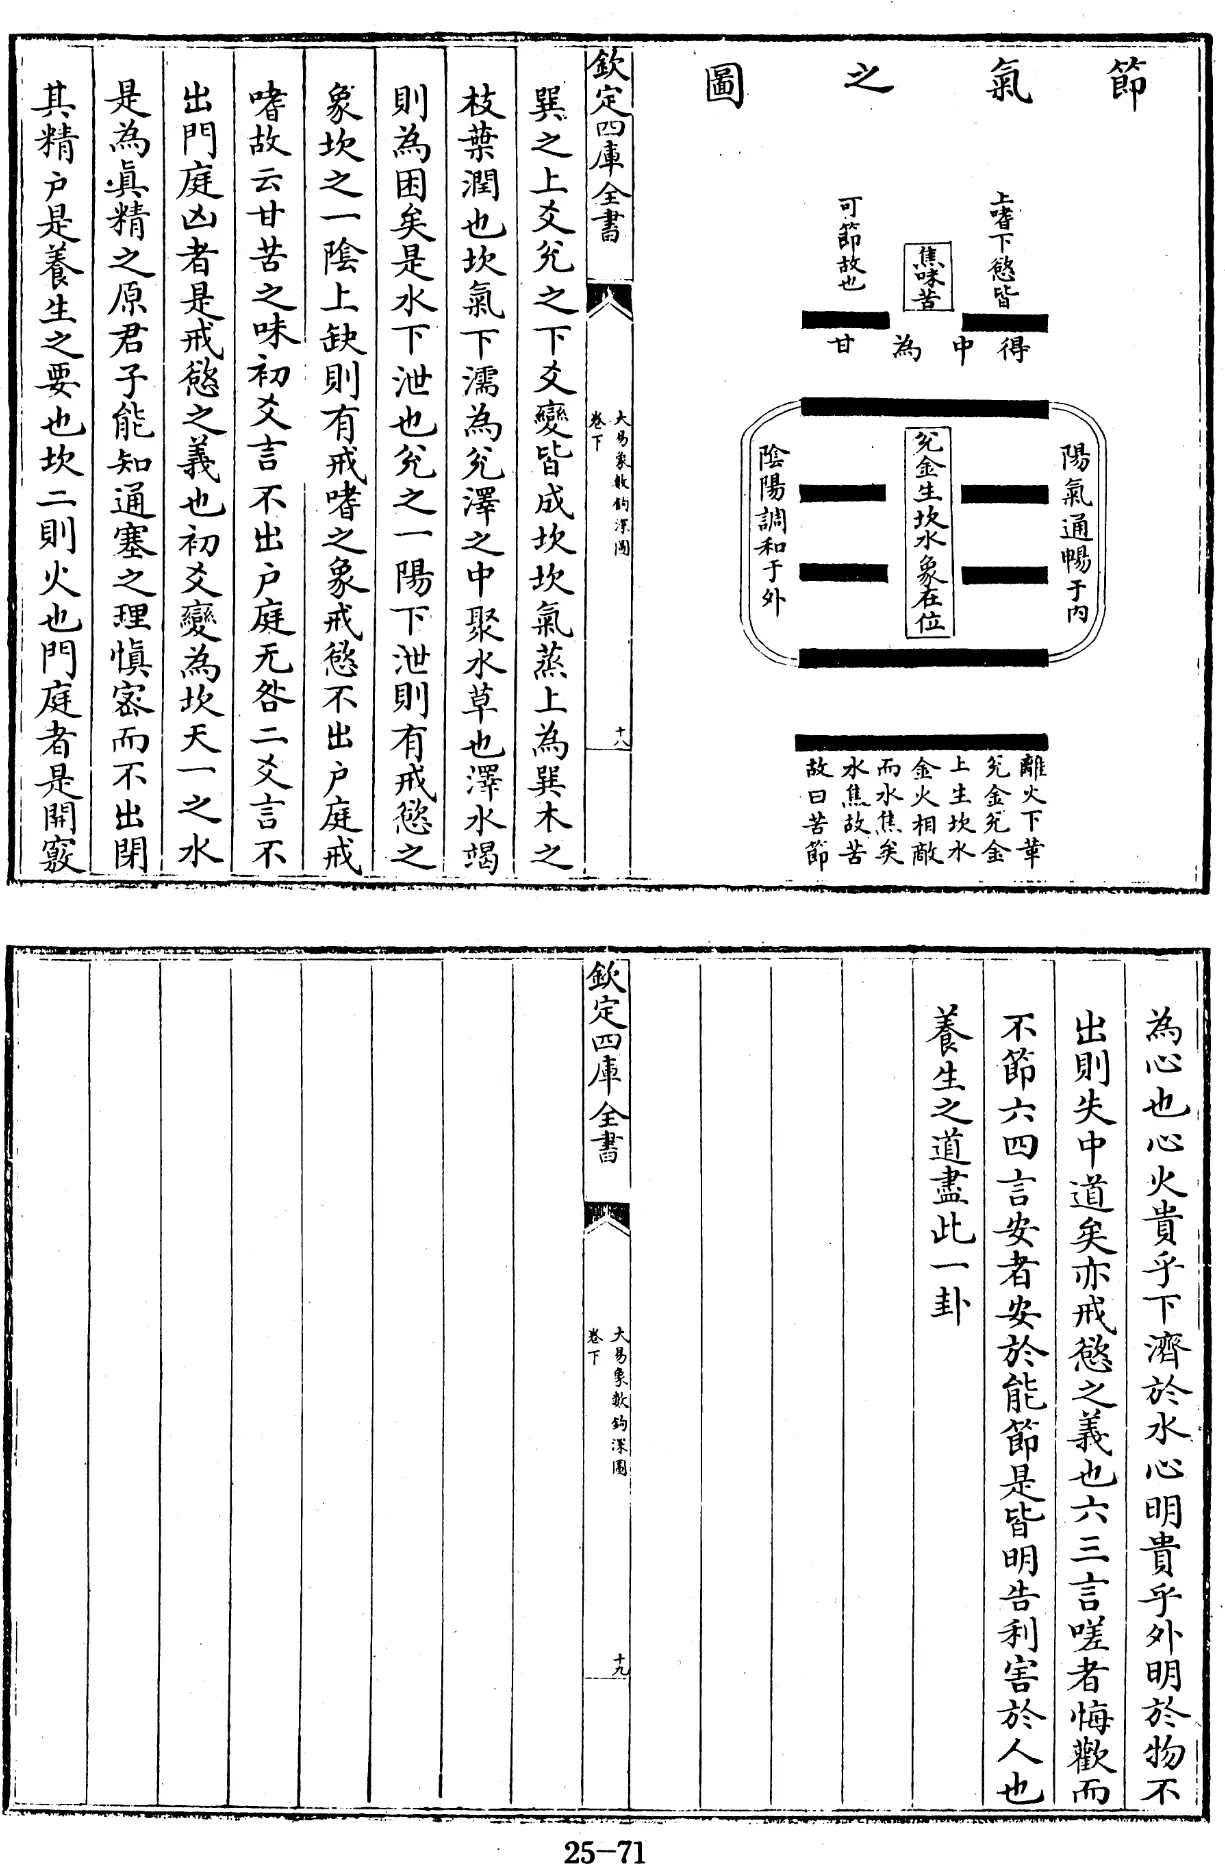 節氣之圖
上嗜下慾皆
可節故也
焦味苦
得中為甘
陽氣通暢于內
兊金生坎水象在位
陰陽調和于外
離火下革
兊金兊金
上生坎水
金火相敵
而水焦矣
水焦故苦
故曰苦節
欽定四庫全書
大易象數鉤深圖
卷下
十八
巽之上爻兊之下爻變皆成坎坎氣蒸上為巽木之
枝葉潤也坎氣下濡為兊澤之中聚水草也澤水竭
則為困矣是水下泄也兊之一陽下泄則有戒慾之
象坎之一陰上缺則有戒嗜之象戒慾不出户庭戒
嗜故云甘苦之味初爻言不出户庭无咎二爻言不
出門庭凶者是戒慾之義也初爻變為坎天一之水
是為真精之原君子能知通塞之理慎宻而不出閉
其精户是養生之要也坎二則火也門庭者是開竅
為心也心火貴乎下濟於水心明貴乎外明於物不
出則失中道矣亦戒慾之義也六三言嗟者悔歡而
不節六四言安者安於能節是皆明告利害於人也
養生之道盡此一卦
欽定四庫全書
大易象數鉤深圖
卷下
十九
25-71